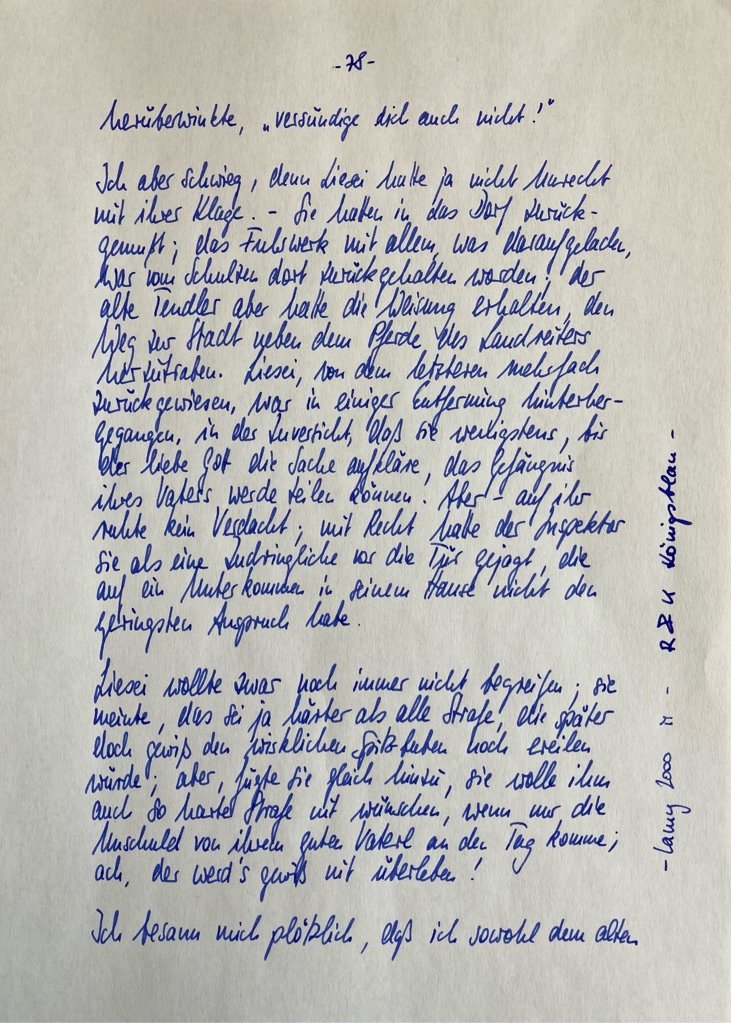 -78-
herüberwinkte, „versündige dich auch nicht!"
Ich aber schwieg, denn Liesei hatte ja nicht Unrecht
mit ihrer Klage. - Sie hatten in das Dorf zurück-
gemußt; das Fuhrwerk mit allem, was daraufgeladen,
war vom Schulzen dort zurückgehalten worden; der
alte Tendler aber hatte die Weisung erhalten, den
Weg zur Stadt neben dem Pferde des Landreiters
herzutraben. Liesei, von dem letzteren mehrfach
zurückgewiesen, war in einiger Entfernung hinterher-
gegangen, in der Zuversicht, daß sie wenigstens, bis
der liebe Gott die Sache aufkläre, das Gefängnis
ihres Vaters werde teilen können. Aber - auf ihr
ruhte kein Verdacht; mit Recht hatte der Inspektor
sie als eine Zudringliche vor die Tür gejagt, die
auf ein Unterkommen in seinem Hause nicht den
geringsten Anspruch habe.
Liesei wollte zwar noch immer nicht begreifen; sie
meinte, das sei ja härter als alle Strafe, die später
doch gewiß den wirklichen Spitzbuben noch ereilen
würde; aber, fügte sie gleich hinzu, sie wolle ihm
auch so harte Strafe nit wünschen, wenn nur die
Unschuld von ihrem guten Vaterl an den Tag komme;
ach, der werd's gwiß nit überleben!
Ich besann mich plötzlich, daß ich sowohl dem alten
-Lamy 2000 - R&K Königsblau-